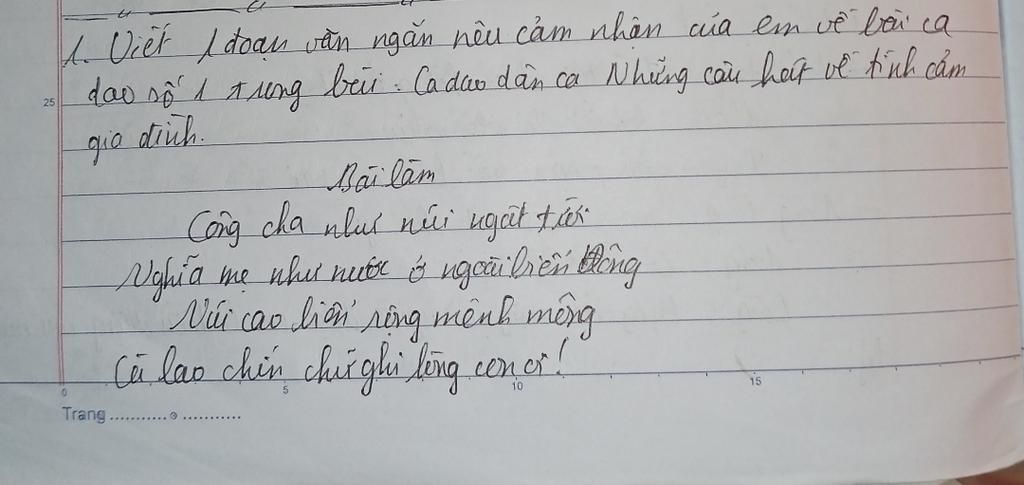 1. Viết 1 đoạn văn ngắn nêu cảm nhận của em về bài ca
25 dao số 1 trong bài: Ca dao dân ca Những câu hát về tình cảm
gia đình.
Bài làm
Công cha như núi ngất trời
Nghĩa mẹ như nước ở ngoài biển Đông
Núi cao biển rộng mênh mông
Cù lao chín chữ ghi lòng con ơi!
0 5 10 15
Trang